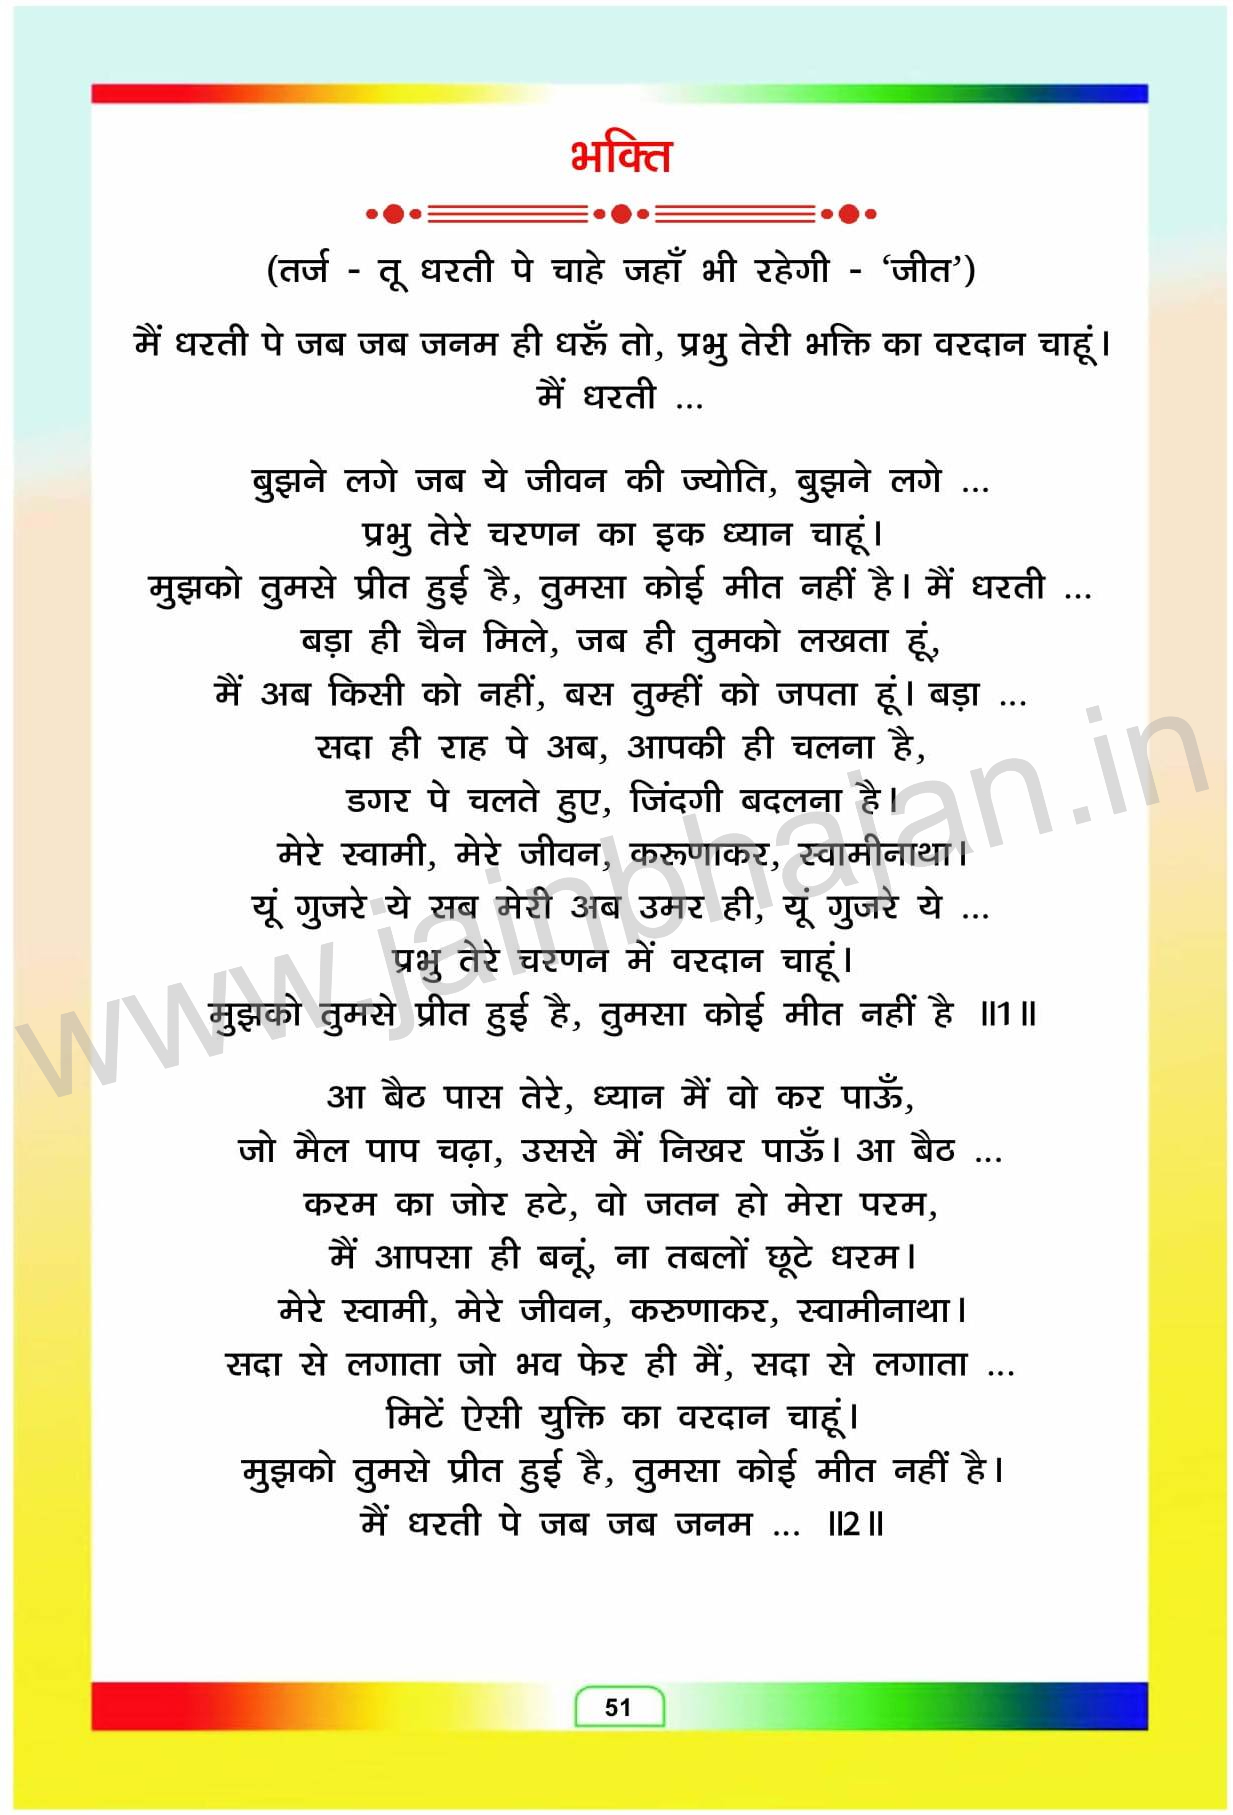 भक्ति
(तर्ज - तू धरती पे चाहे जहाँ भी रहेगी - ‘जीत’)
मैं धरती पे जब जब जनम ही धरूँ तो, प्रभु तेरी भक्ति का वरदान चाहूं।
मैं धरती ...
बुझने लगे जब ये जीवन की ज्योति, बुझने लगे ...
प्रभु तेरे चरणन का इक ध्यान चाहूं।
मुझको तुमसे प्रीत हुई है, तुमसा कोई मीत नहीं है। मैं धरती ...
बड़ा ही चैन मिले, जब ही तुमको लखता हूं,
मैं अब किसी को नहीं, बस तुम्हीं को जपता हूं। बड़ा ...
सदा ही राह पे अब, आपकी ही चलना है,
डगर पे चलते हुए, जिंदगी बदलना है।
मेरे स्वामी, मेरे जीवन, करूणाकर, स्वामीनाथा।
यूं गुजरे ये सब मेरी अब उमर ही, यूं गुजरे ये ...
प्रभु तेरे चरणन में वरदान चाहूं।
मुझको तुमसे प्रीत हुई है, तुमसा कोई मीत नहीं है ॥1॥
आ बैठ पास तेरे, ध्यान मैं वो कर पाऊँ,
जो मैल पाप चढ़ा, उससे मैं निखर पाऊँ। आ बैठ ...
करम का जोर हटे, वो जतन हो मेरा परम,
मैं आपसा ही बनूं, ना तबलों छूटे धरम।
मेरे स्वामी, मेरे जीवन, करुणाकर, स्वामीनाथा।
सदा से लगाता जो भव फेर ही मैं, सदा से लगाता ...
मिटें ऐसी युक्ति का वरदान चाहूं।
मुझको तुमसे प्रीत हुई है, तुमसा कोई मीत नहीं है।
मैं धरती पे जब जब जनम ... ॥2॥
51
www.jainbhajan.in